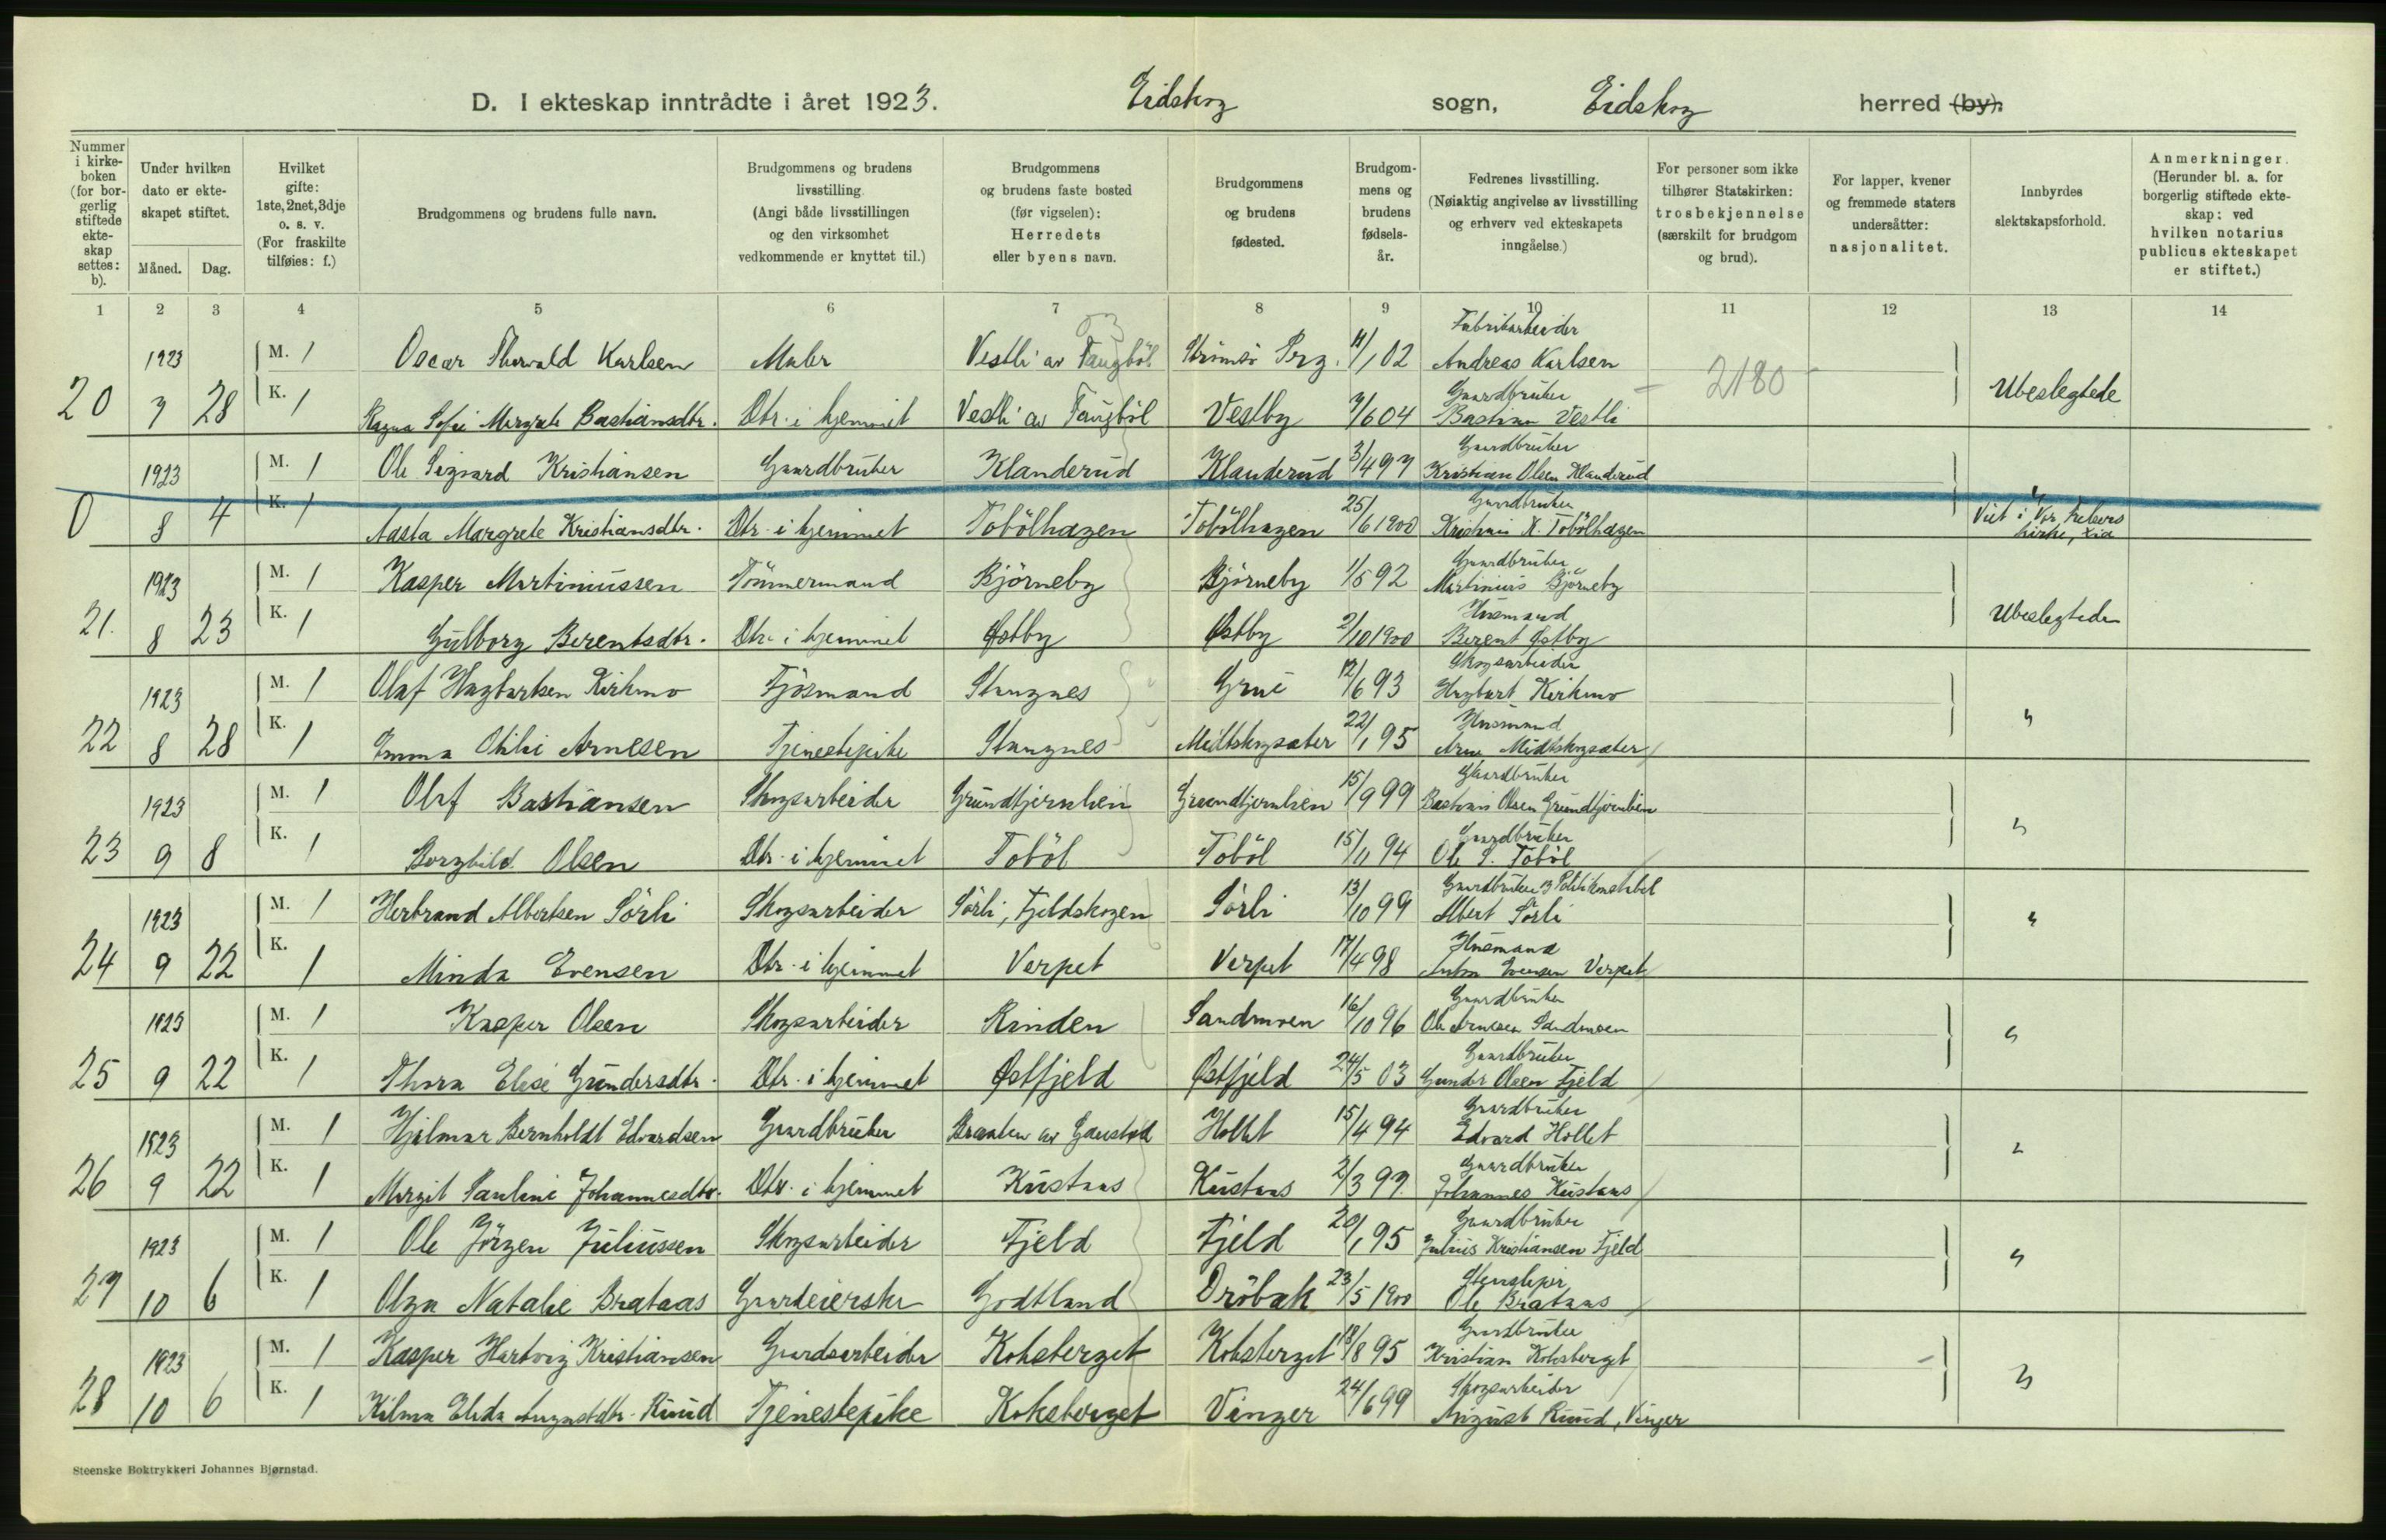 D. I ekteskap inntrådte i året 1923. Eidskog sogn, Eidskog herred (by).
Nummer i kirkeboken (for borgerlig stiftede ekteskap settes: b).
Under hvilken dato er ekteskapet stiftet.
Måned. Dag.
Hvilket gifte: 1ste, 2net, 3dje o. s. v. (For fraskilte tilføies: f.)
Brudgommens og brudens fulle navn.
Brudgommens og brudens livsstilling. (Angi både livsstillingen og den virksomhet vedkommende er knyttet til.)
Brudgommens og brudens faste bosted (før vigselen): Herredets eller byens navn.
Brudgommens og brudens fødested.
Brudgommens og brudens fødselsår.
Fedrenes livsstilling. (Nøiaktig angivelse av livsstilling og erhverv ved ekteskapets inngåelse.)
For personer som ikke tilhører Statskirken: trosbekjennelse (særskilt for brudgom og brud).
For lapper, kvener og fremmede staters undersåtter: nasjonalitet.
Innbyrdes slektskapsforhold.
Anmerkninger. (Herunder bl. a. for borgerlig stiftede ekteskap: ved hvilken notarius publicus ekteskapet er stiftet.)
1 2 3 4 5 6 7 8 9 10 11 12 13 14
Fabrikarbeider
1923 M. 1 Oscar Thorvald Karlsen Maler Vestli av Taugböl Strömsö Prg. 11/1 02 Andreas Karlsen
2180
Gaardbruker
20 7 28 K. 1 Ragna Sofie Margrete Bastiansdtr. Dtr. i hjemmet Vestli av Taugböl Vestby 7/6 04 Bastian Vestli Ubeslegtede
Gaardbruker
1923 M. 1 Ole Sigvard Kristiansen Gaardbruker Klanderud Klanderud 3/4 97 Kristian Olsen Klanderud
Gaardbruker
0 8 4 K. 1 Aasta Margrete Kristiansdtr. Dtr. i hjemmet Tobölhagen Tobölhagen 25/6 1900 Kristian K. Tobölhagen
Viet i Vor Frelsers kirke, Xia
Gaardbruker
1923 M. 1 Kasper Martiniussen Tömmermand Björneby Björneby 1/5 92 Martinius Björneby
Husmand
21. 8 23 K. 1 Gulborg Berentsdtr. Dtr. i hjemmet Østby Østby 2/10 1900 Berent Østby Ubeslegtede
Skogsarbeider
1923 M. 1 Olaf Hagbartsen Kirkmo Fjösmand Skaugnes Grue 12/6 93 Hagbart Kirkmo
Husmand
22 8 28 K. 1 Emma Otilie Arnesen Tjenestepike Skaugnes Midtskogsæter 22/1 95 Arne Midtskogsæter "
Gaardbruker
1923 M. 1 Olaf Bastiansen Skogsarbeider Grundtjernlien Grundtjernlien 15/9 99 Bastian Olsen Grundtjernlien
Gaardbruker
23 9 8 K. 1 Borghild Olsen Dtr. i hjemmet Toböl Toböl 15/11 94 Ole S. Toböl "
Gaardbruker og Politikonstabel
1923 M. 1 Herbrand Albertsen Sörli Skogsarbeider Sörli, Fjeldskogen Sörli 13/10 99 Albert Sörli
Husmand
24 9 22 K. 1 Minda Evensen Dtr. i hjemmet Verpet Verpet 17/4 98 Anton Evensen Verpet "
Gaardbruker
1923 M. 1 Kasper Olsen Skogsarbeider Rinden Sandmoen 16/10 96 Ole Arnesen Sandmoen
Gaardbruker
25 9 22 K. 1 Thora Elise Gundersdtr. Dtr. i hjemmet Østfjeld Østfjeld 24/5 03 Gunder Olsen Fjeld "
Gaardbruker
1923 M. 1 Hjalmar Bernholdt Edvardsen Gaardbruker Braaten av Gaustad Hollet 15/4 94 Edvard Hollet
Gaardbruker
26 9 22 K. 1 Margit Pauline Johannesdtr. Dtr. i hjemmet Kustaas Kustaas 2/3 97 Johannes Kustaas "
Gaardbruker
1923 M. 1 Ole Jörgen Juliussen Skogsarbeider Fjeld Fjeld 20/1 95 Julius Kristiansen Fjeld
Stensliper
27 10 6 K. 1 Olga Natalie Brataas Gaardeierske Godtland Dröbak 23/5 1900 Ole Brataas "
Gaardbruker
1923 M. 1 Kasper Hartvig Kristiansen Gaardsarbeider Koksberget Koksberget 18/8 95 Kristian Koksberget
Skogsarbeider
28 10 6 K. 1 Hilma Elida Augustdtr. Ruud Tjenestepike Koksberget Vinger 24/6 99 August Ruud, Vinger "
Steenske Boktrykkeri Johannes Bjørnstad.